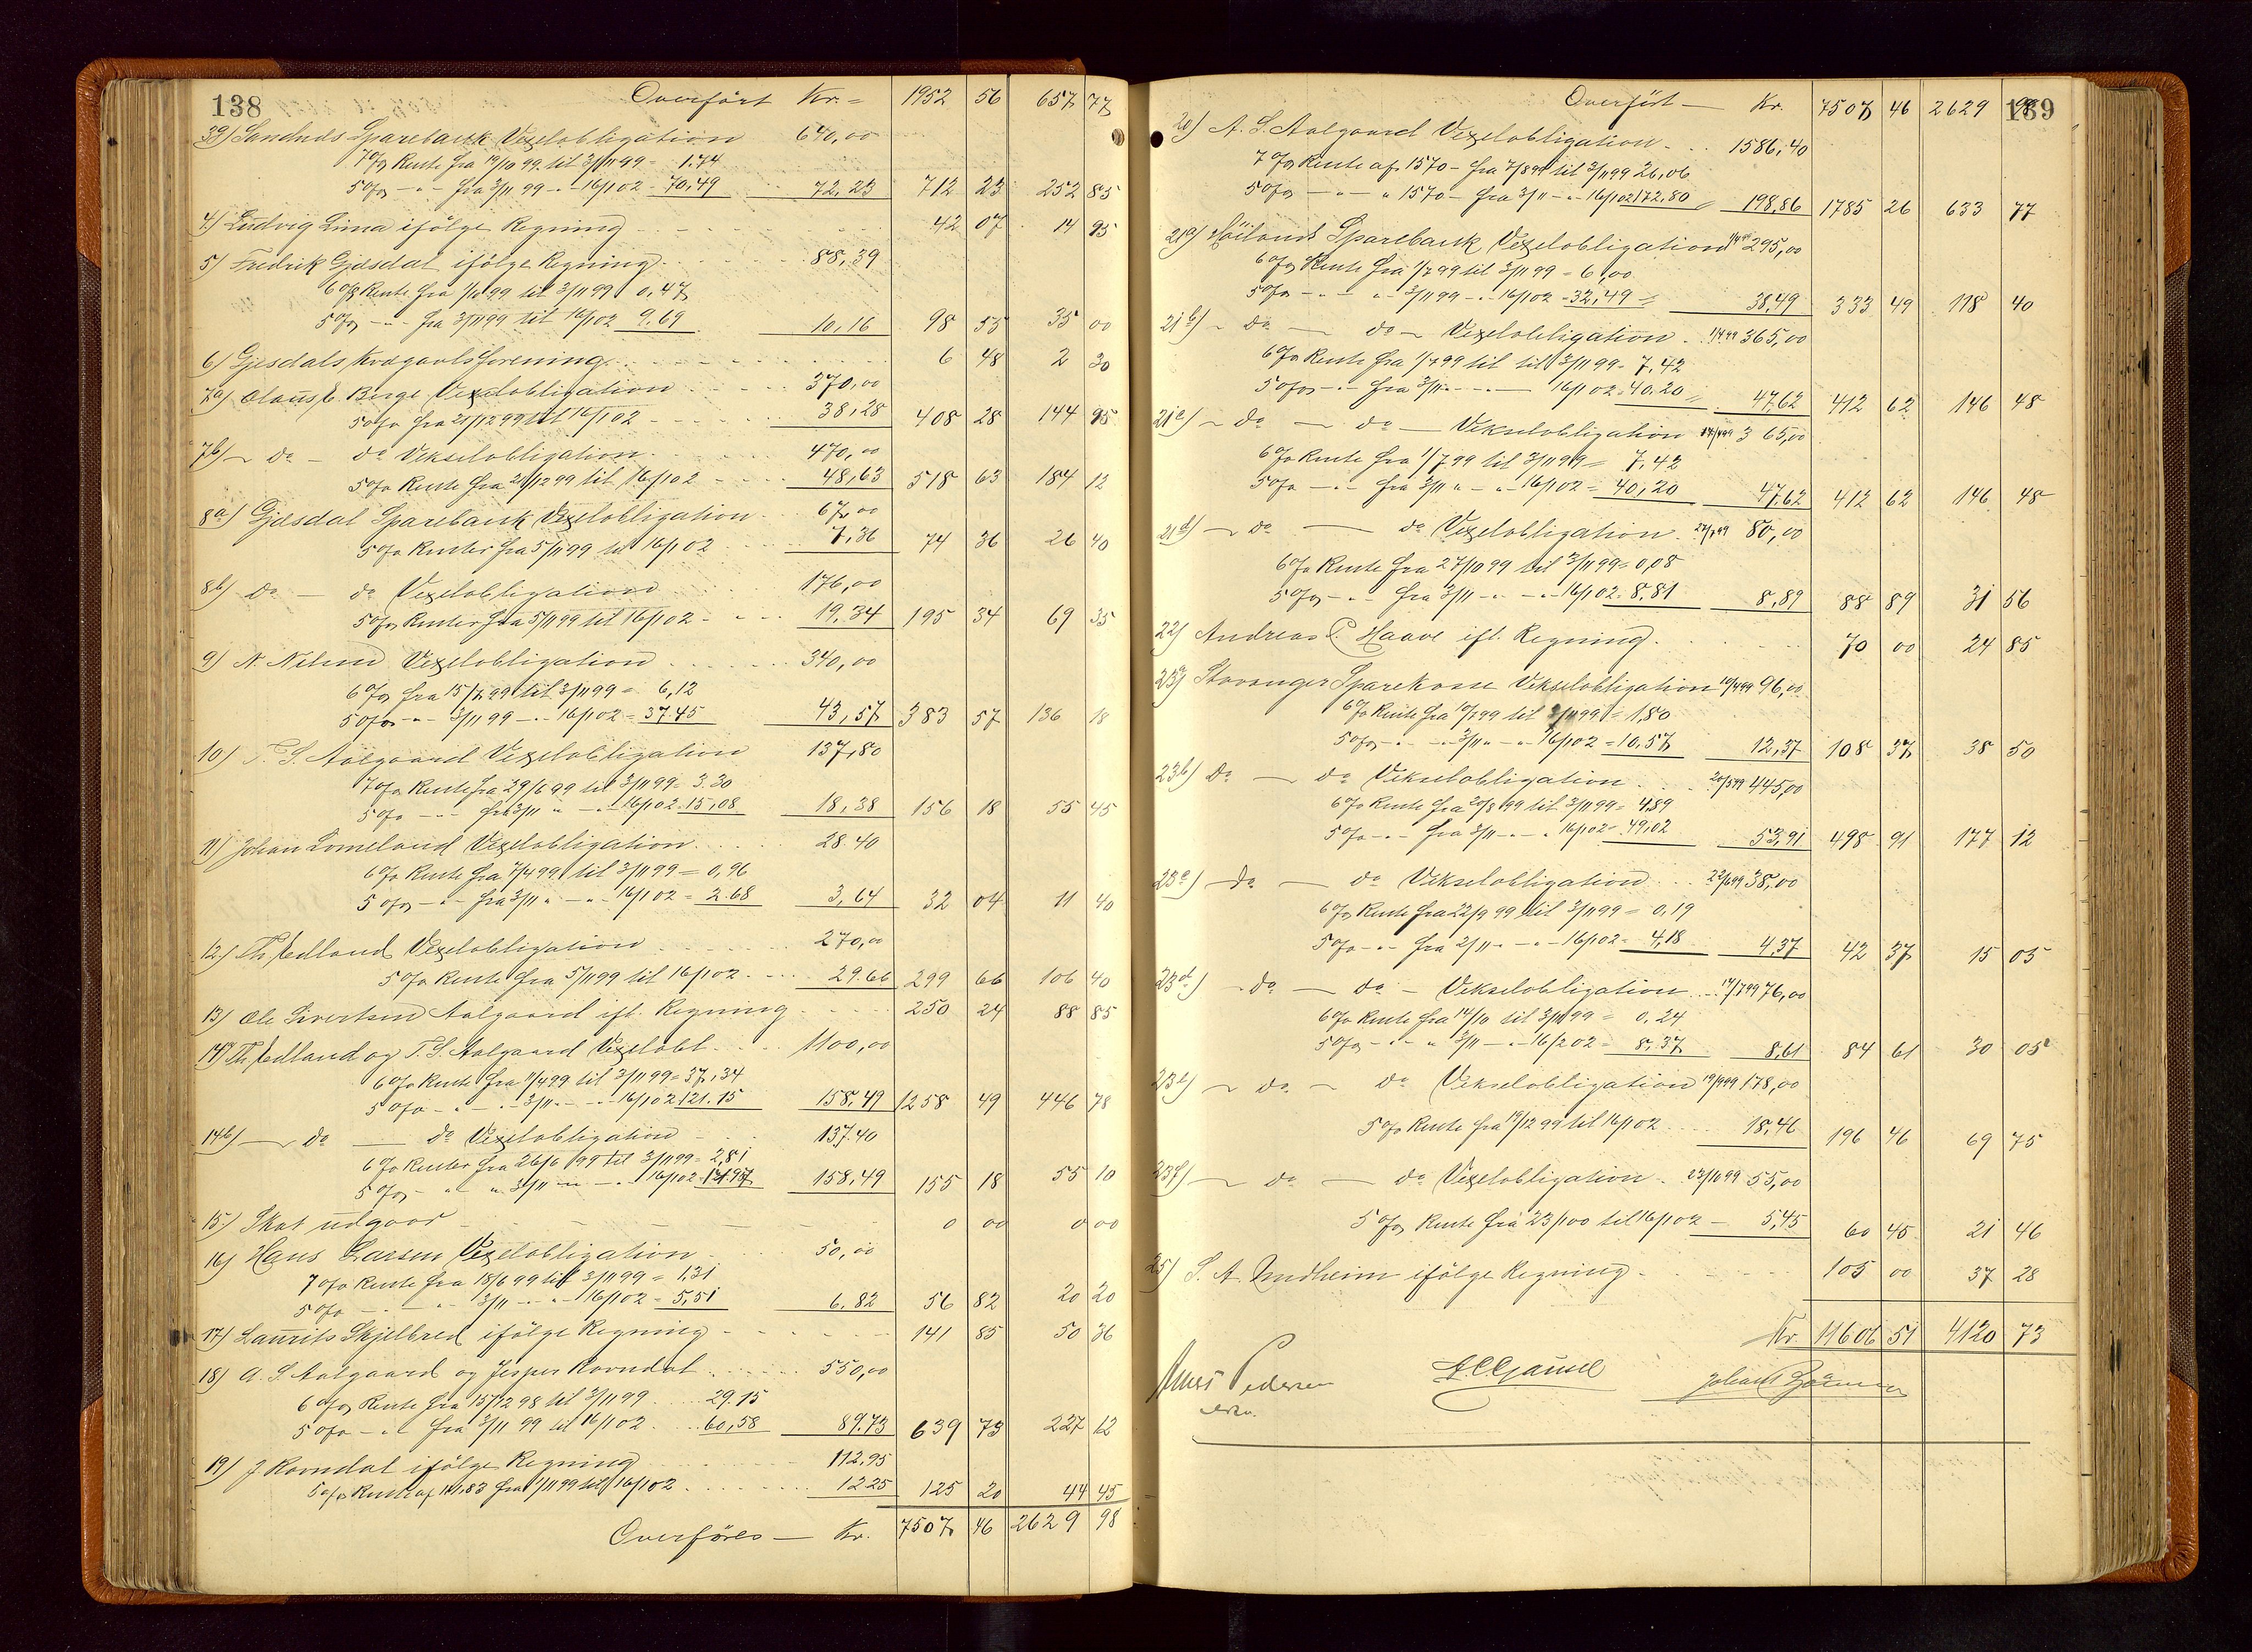 138
Overført Kr. = 1952 56 657 77
3g) Sandnds Sparebank Vexelobligation 640,00
7% Rente fra 19/10 99 til 3/11 99 = 1.74
5% -"- fra 3/11 99 -"- 16/1 02 - 70,49 72,23 712 23 252 85
4) Ludvig Lima ifølge Regning 42 07 14 95
5) Fredrik Gjesdal ifølge Regning 88,39
6% Rente fra 1/10 99 til 3/11 99 0,47
5% -"- fra 3/11 99 til 16/1 02 9.69 10,16 98 55 35 00
6) Gjesdals Kvægavlsforening 6 48 2 30
7a) Claus E. Berge Vexelobligation 370,00
5% fra 21/12 99 til 16/1 02 38,28 408 28 144 95
7b) - do - do Vekselobligation 470,00
5% Rente fra 21/12 99 til 16/1 02 48,63 518 63 184 12
8a) Gjesdal Sparebank Vexelobligation 67,00
5% Renter fra 5/11 99 til 16/1 02 7,36 74 36 26 40
8b) do - do Vexelobligation 176,00
5% Renter fra 5/11 99 til 16/1 02 - 19,34 195 34 69 35
9) N. Nilsen Vexelobligation 340,00
6% fra 15/7 99 til 3/11 99 = 6,12
5% -"- 3/11 99 -"- 16/1 02 = 37.45 43,57 383 57 136 18
10) T. S. Aalgaard Vexelobligation 137,80
7% Rente fra 29/6 99 til 3/11 99 = 3.30
5% -"- fra 3/11 " -"- 16/1 02 - 15,08 18,38 156 18 55 45
11) Johan Lomeland Vexelobligation 28.40
6% Rente fra 7/4 99 til 3/11 99 = 0,96
5% -"- fra 3/11 " -"- 16/1 02 = 2.68 3,64 32 04 11 40
12) Th. Edland Vexelobligation 270,00
5% Rente fra 5/11 99 til 16/1 02 29.66 299 66 106 40
13) Ole Sivertsen Aalgaard ifl. Regning 250 24 88 85
14a) Th. Edland og T. S. Aalgaard Vexelobl. 1100,00
6% Rente fra 11/4 99 til 3/11 99 = 37,34
5% -"- -"- 3/11 -"- 16/1 02 121.15 158,49 1258 49 446 78
14b) - do - do Vexelobligation 137.40
6% Renter fra 26/6 99 til 3/11 99 = 2,81
5% -"- " 3/11 -"- 16/1 02 158,49 155 18 55 10
15) Skat udgaar 0 00 0 00
16) Hans Larsen Vexelobligation 50,00
7% Rente fra 18/6 99 til 3/11 99 = 1,31
5% -"- 3/11 -"- 16/1 02 = 5,51 6,82 56 82 20 20
17) Laurits Skjelbred ifølge Regning 141 85 50 36
18) A. S. Aalgaard og Jesper Ravndal 550,00
6% Rente fra 15/12 98 til 3/11 99 29.15
5% -"- fra 3/11 99 til 16/1 02 60,58 89.73 639 73 227 12
19) J Ravndal ifølge Regning 112,95
5% Rente af 111,83 fra 1/11 99 til 16/1 02 12 25 125 20 44 45
Overføres - Kr. 7507 46 2629 98
139
Overført - Kr. 7507 46 2629 98
20) A. S. Aalgaard Vexelobligation 1586,40
7% Rente af 1570 - fra 7/8 99 til 3/11 99 26,06
5% -"- " 1570 - fra 3/11 -"- 16/1 02 172,80 198,86 1785 26 633 77
21a) Høilands Sparebank Vexelobligation 1/4 99 295,00
6% Rente fra 1/7 99 til 3/11 99 = 6,00
5% -"- " 3/11 99 -"- 16/1 02 = 32,49 38,49 333 49 118 40
21b) - do - do - Vexelobligation 1/4 99 365,00
6% Rente fra 1/7 99 til til 3/11 99 - 7,42
5% -"- fra 3/11 -"- 16/1 02 = 40,20 47,62 412 62 146 48
21c) - do - do - Vekselobligation 14/4 99 365,00
6% Rente fra 1/7 99 til 3/11 99 = 7,42
5% -"- fra 3/11 " -"- 16/1 02 = 40,20 47,62 412 62 146 48
21d) - do - do Vexelobligation 27/7 99 80,00
6% Rente fra 27/10 99 til 3/11 99 = 0,08
5% -"- fra 3/11 -"- 16/1 02 = 8,81 8,89 88 89 31 56
22) Andreas P. Haave ifl. Regning 70 00 24 85
23a) Stavanger Sparekasse Vekselobligation 10/4 99 96,00
6% Rente fra 10/7 99 til 3/11 99 = 1,80
5% -"- 3/11 " -"- 16/1 02 = 10,57 12,37 108 37 38 50
23b) do - do Vekselobligation 20/5 99 445,00
6% Rente fra 20/8 99 til 3/11 99 = 4,89
5% -"- fra 3/11 -"- 16/1 02 = 49,02 53,91 498 91 177 12
23c) - do - do Vekselobligation 22/6 99 38,00
6% Rente fra 22/9 99 til 3/11 99 = 0,19
5% -"- fra 2/11 " -"- 16/1 02 = 4,18 4,37 42 37 15 05
23d) - do - do - Vekselobligation 14/7 99 76,00
6% Rente fra 14/10 til 3/11 99 = 0,24
5% -"- " 3/11 -"- 16/2 02 = 8,37 8,61 84 61 30 05
23e) - do - do Vekselobligation 19/9 99 178,00
5% Rente fra 19/12 99 til 16/1 02 18,46 196 46 69 75
23f) - do - do Vexelobligation 23/10 99 55,00
5% Rente fra 23/1 00 til 16/1 02 - 5,45 60 45 21 46
25) S. A. Undheim ifølge Regning 105 00 37 28
Kr. 11606 51 4120 73
Pedersen
Gausel
Johan